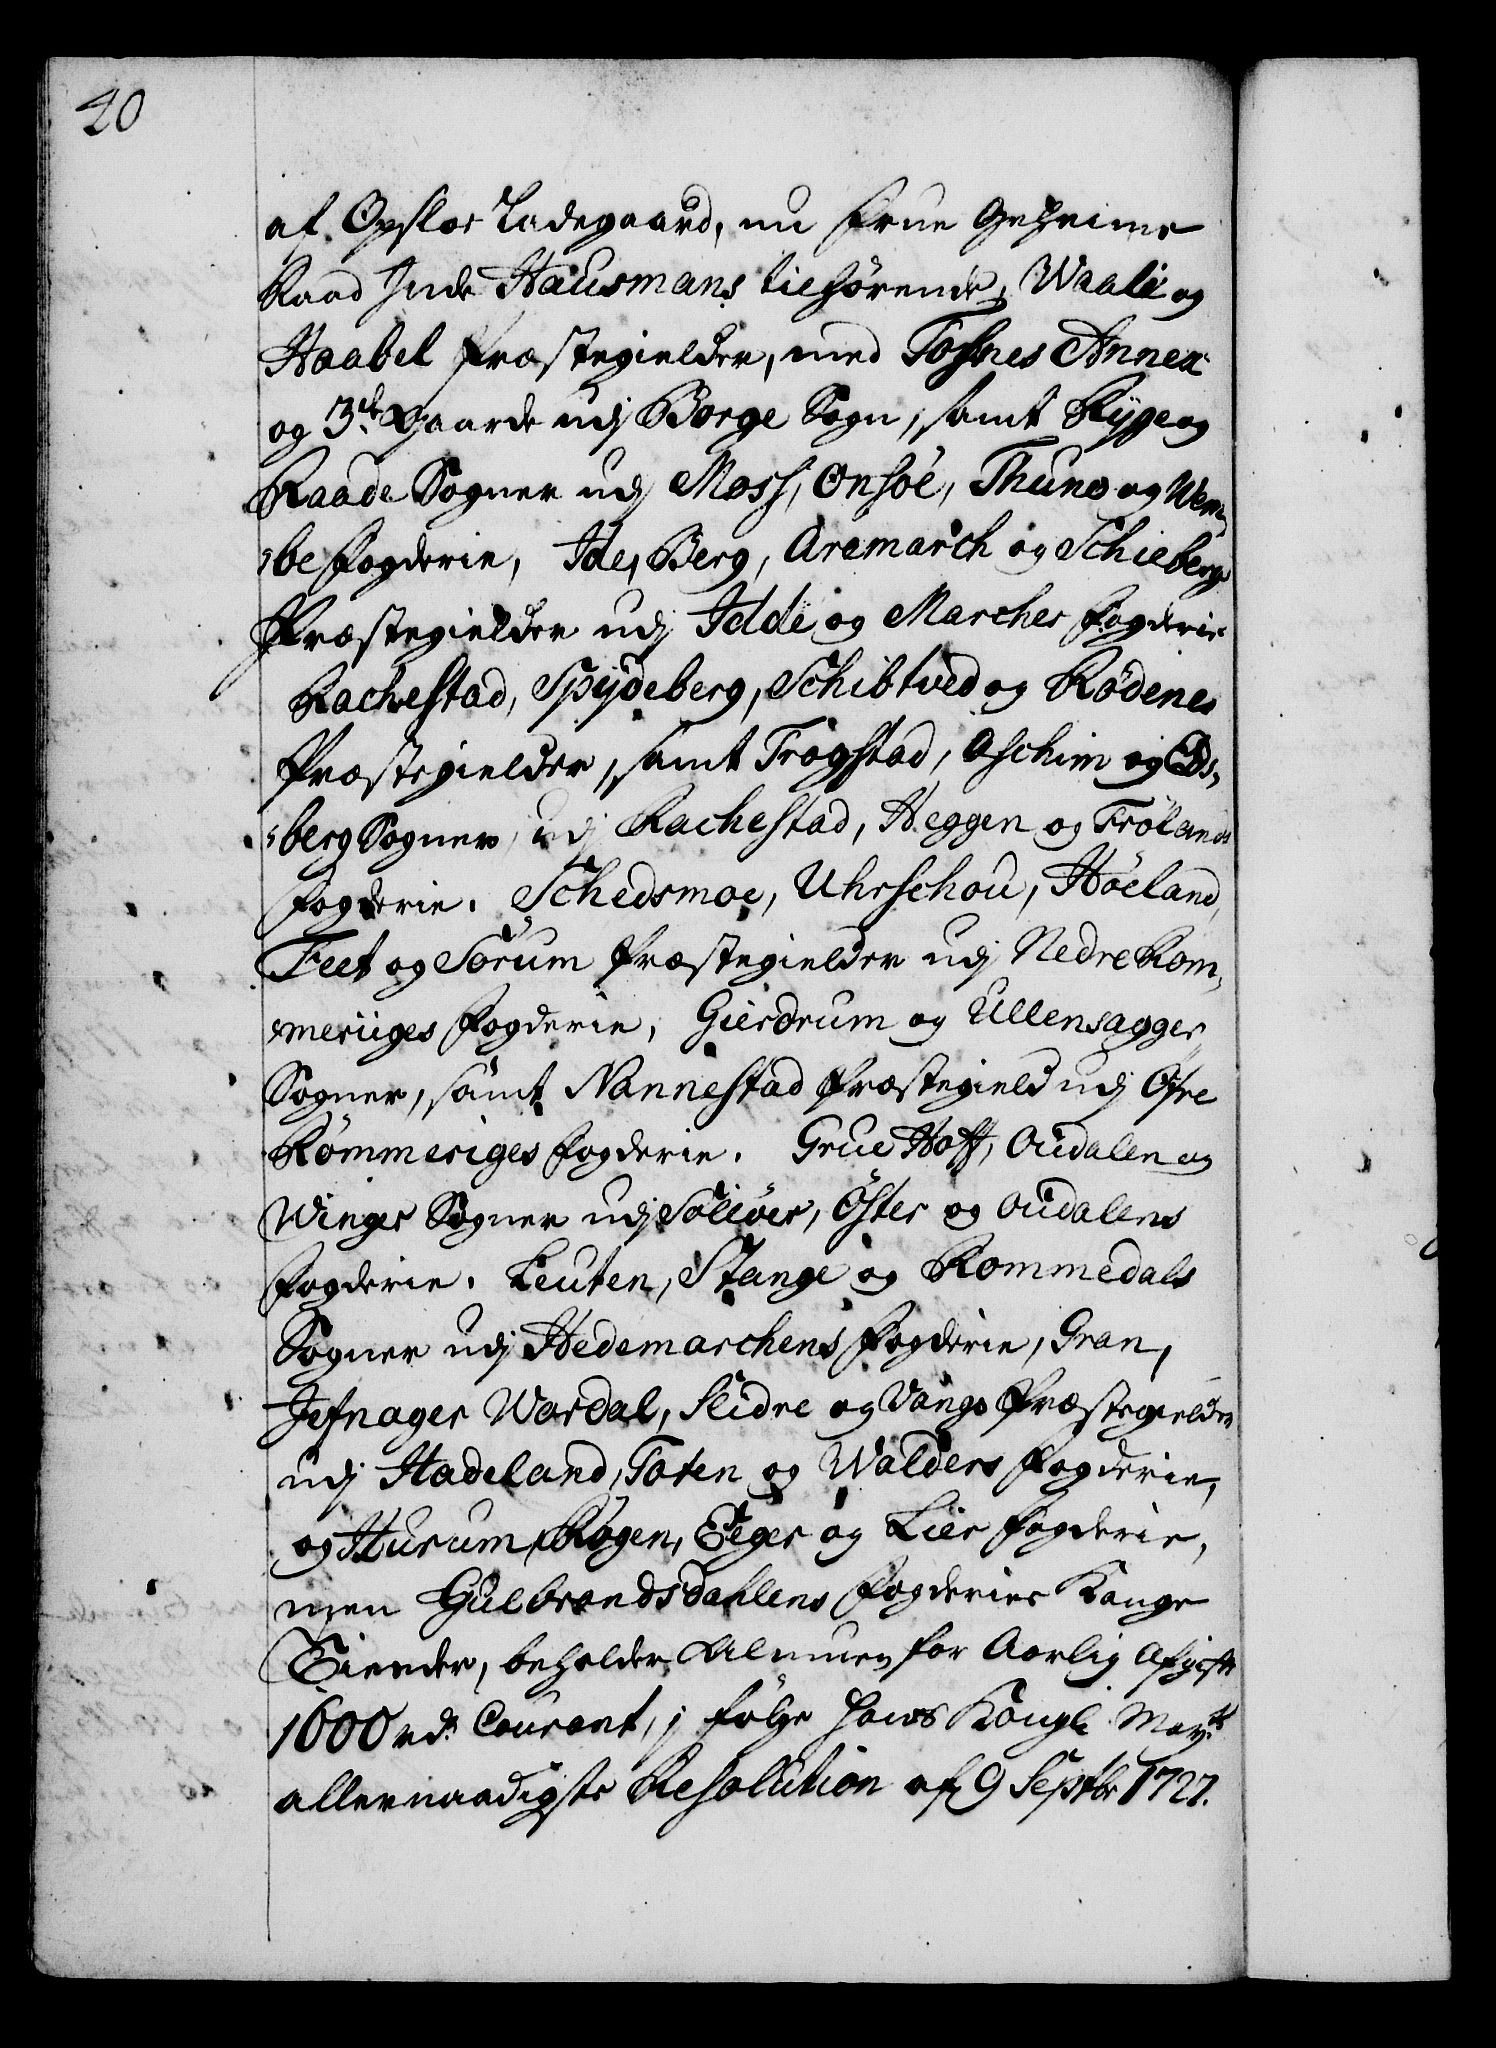 20
af Opsloe Ladegaard, nu Frue Geheime
Raad Inde Hausmans tilhørende, Waale og
Haabel Præstegielder, med Tosnes Annex
og 3de Gaarde udj Borge Sogn, samt Rygge og
Raade Sogner udj Moss, Onsøe, Thunø og Wem,
,be Fogderie, Ide, Berg, Aremarch og Schieberg
Præstegielder udj Idde og Marcher Fogderie
Rachestad, Spydeberg, Schibtved og Rødenes
Præstegielder, samt Trogstad, Aschim og Eds,
,berg Sogner, udj Rachestad, Heggen og Frølands
Fogderie. Schedsmoe, Uhrschou, Høeland,
Feet og Sørum Præstegielder udj Nedre Rom,
,meriiges Fogderie, Gierdrum og Ullensagger
Sogner, samt Nannestad Præstegield udj Øfre
Rommeriges Fogderie. Grue Hoff, Oudalen og
Winger Sogner udj Soliøer, Øster og Oudalens
Fogderie. Leuten, Stange og Rommedals
Sogner udj Hedemarchens Fogderie, Gran,
Jefnager Wardal, Slidre og Vangs Præstegielder
udj Hadeland, Toten og Walders Fogderie,
og Hurum, Røgen, Eger og Lier Fogderie,
men Gulbrandsdahlens Fogderies Konge
Tiender, beholder Almuen for Aarlig Afgift
1600 rd. Courant, j følge Hans Kongl: May:ts
allernaadigste Resolution af 9 Septbr 1727.